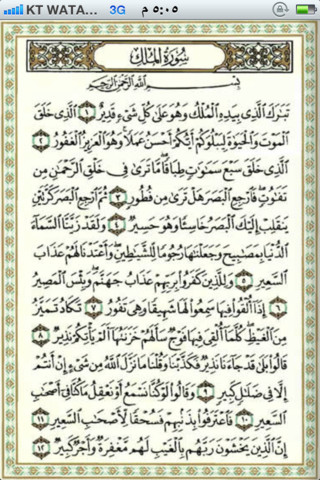 KT WATA... 3G ٥:٠٥ م
سُورَةُ الْمُلْكِ
بِسْمِ اللَّهِ الرَّحْمَٰنِ الرَّحِيمِ
تَبَٰرَكَ ٱلَّذِى بِيَدِهِ ٱلْمُلْكُ وَهُوَ عَلَىٰ كُلِّ شَىْءٍ قَدِيرٌ ١ ٱلَّذِى خَلَقَ
ٱلْمَوْتَ وَٱلْحَيَوٰةَ لِيَبْلُوَكُمْ أَيُّكُمْ أَحْسَنُ عَمَلًا وَهُوَ ٱلْعَزِيزُ ٱلْغَفُورُ ٢
ٱلَّذِى خَلَقَ سَبْعَ سَمَٰوَٰتٍ طِبَاقًا مَّا تَرَىٰ فِى خَلْقِ ٱلرَّحْمَٰنِ مِن
تَفَٰوُتٍ فَٱرْجِعِ ٱلْبَصَرَ هَلْ تَرَىٰ مِن فُطُورٍ ٣ ثُمَّ ٱرْجِعِ ٱلْبَصَرَ كَرَّتَيْنِ
يَنقَلِبْ إِلَيْكَ ٱلْبَصَرُ خَاسِئًا وَهُوَ حَسِيرٌ ٤ وَلَقَدْ زَيَّنَّا ٱلسَّمَآءَ
ٱلدُّنْيَا بِمَصَٰبِيحَ وَجَعَلْنَٰهَا رُجُومًا لِّلشَّيَٰطِينِ وَأَعْتَدْنَا لَهُمْ عَذَابَ
ٱلسَّعِيرِ ٥ وَلِلَّذِينَ كَفَرُوا۟ بِرَبِّهِمْ عَذَابُ جَهَنَّمَ وَبِئْسَ ٱلْمَصِيرُ
٦ إِذَآ أُلْقُوا۟ فِيهَا سَمِعُوا۟ لَهَا شَهِيقًا وَهِىَ تَفُورُ ٧ تَكَادُ تَمَيَّزُ
مِنَ ٱلْغَيْظِ كُلَّمَآ أُلْقِىَ فِيهَا فَوْجٌ سَأَلَهُمْ خَزَنَتُهَآ أَلَمْ يَأْتِكُمْ نَذِيرٌ ٨
قَالُوا۟ بَلَىٰ قَدْ جَآءَنَا نَذِيرٌ فَكَذَّبْنَا وَقُلْنَا مَا نَزَّلَ ٱللَّهُ مِن شَىْءٍ إِنْ أَنتُمْ
إِلَّا فِى ضَلَٰلٍ كَبِيرٍ ٩ وَقَالُوا۟ لَوْ كُنَّا نَسْمَعُ أَوْ نَعْقِلُ مَا كُنَّا فِىٓ أَصْحَٰبِ
ٱلسَّعِيرِ ١٠ فَٱعْتَرَفُوا۟ بِذَنۢبِهِمْ فَسُحْقًا لِّأَصْحَٰبِ ٱلسَّعِيرِ ١١
إِنَّ ٱلَّذِينَ يَخْشَوْنَ رَبَّهُم بِٱلْغَيْبِ لَهُم مَّغْفِرَةٌ وَأَجْرٌ كَبِيرٌ ١٢